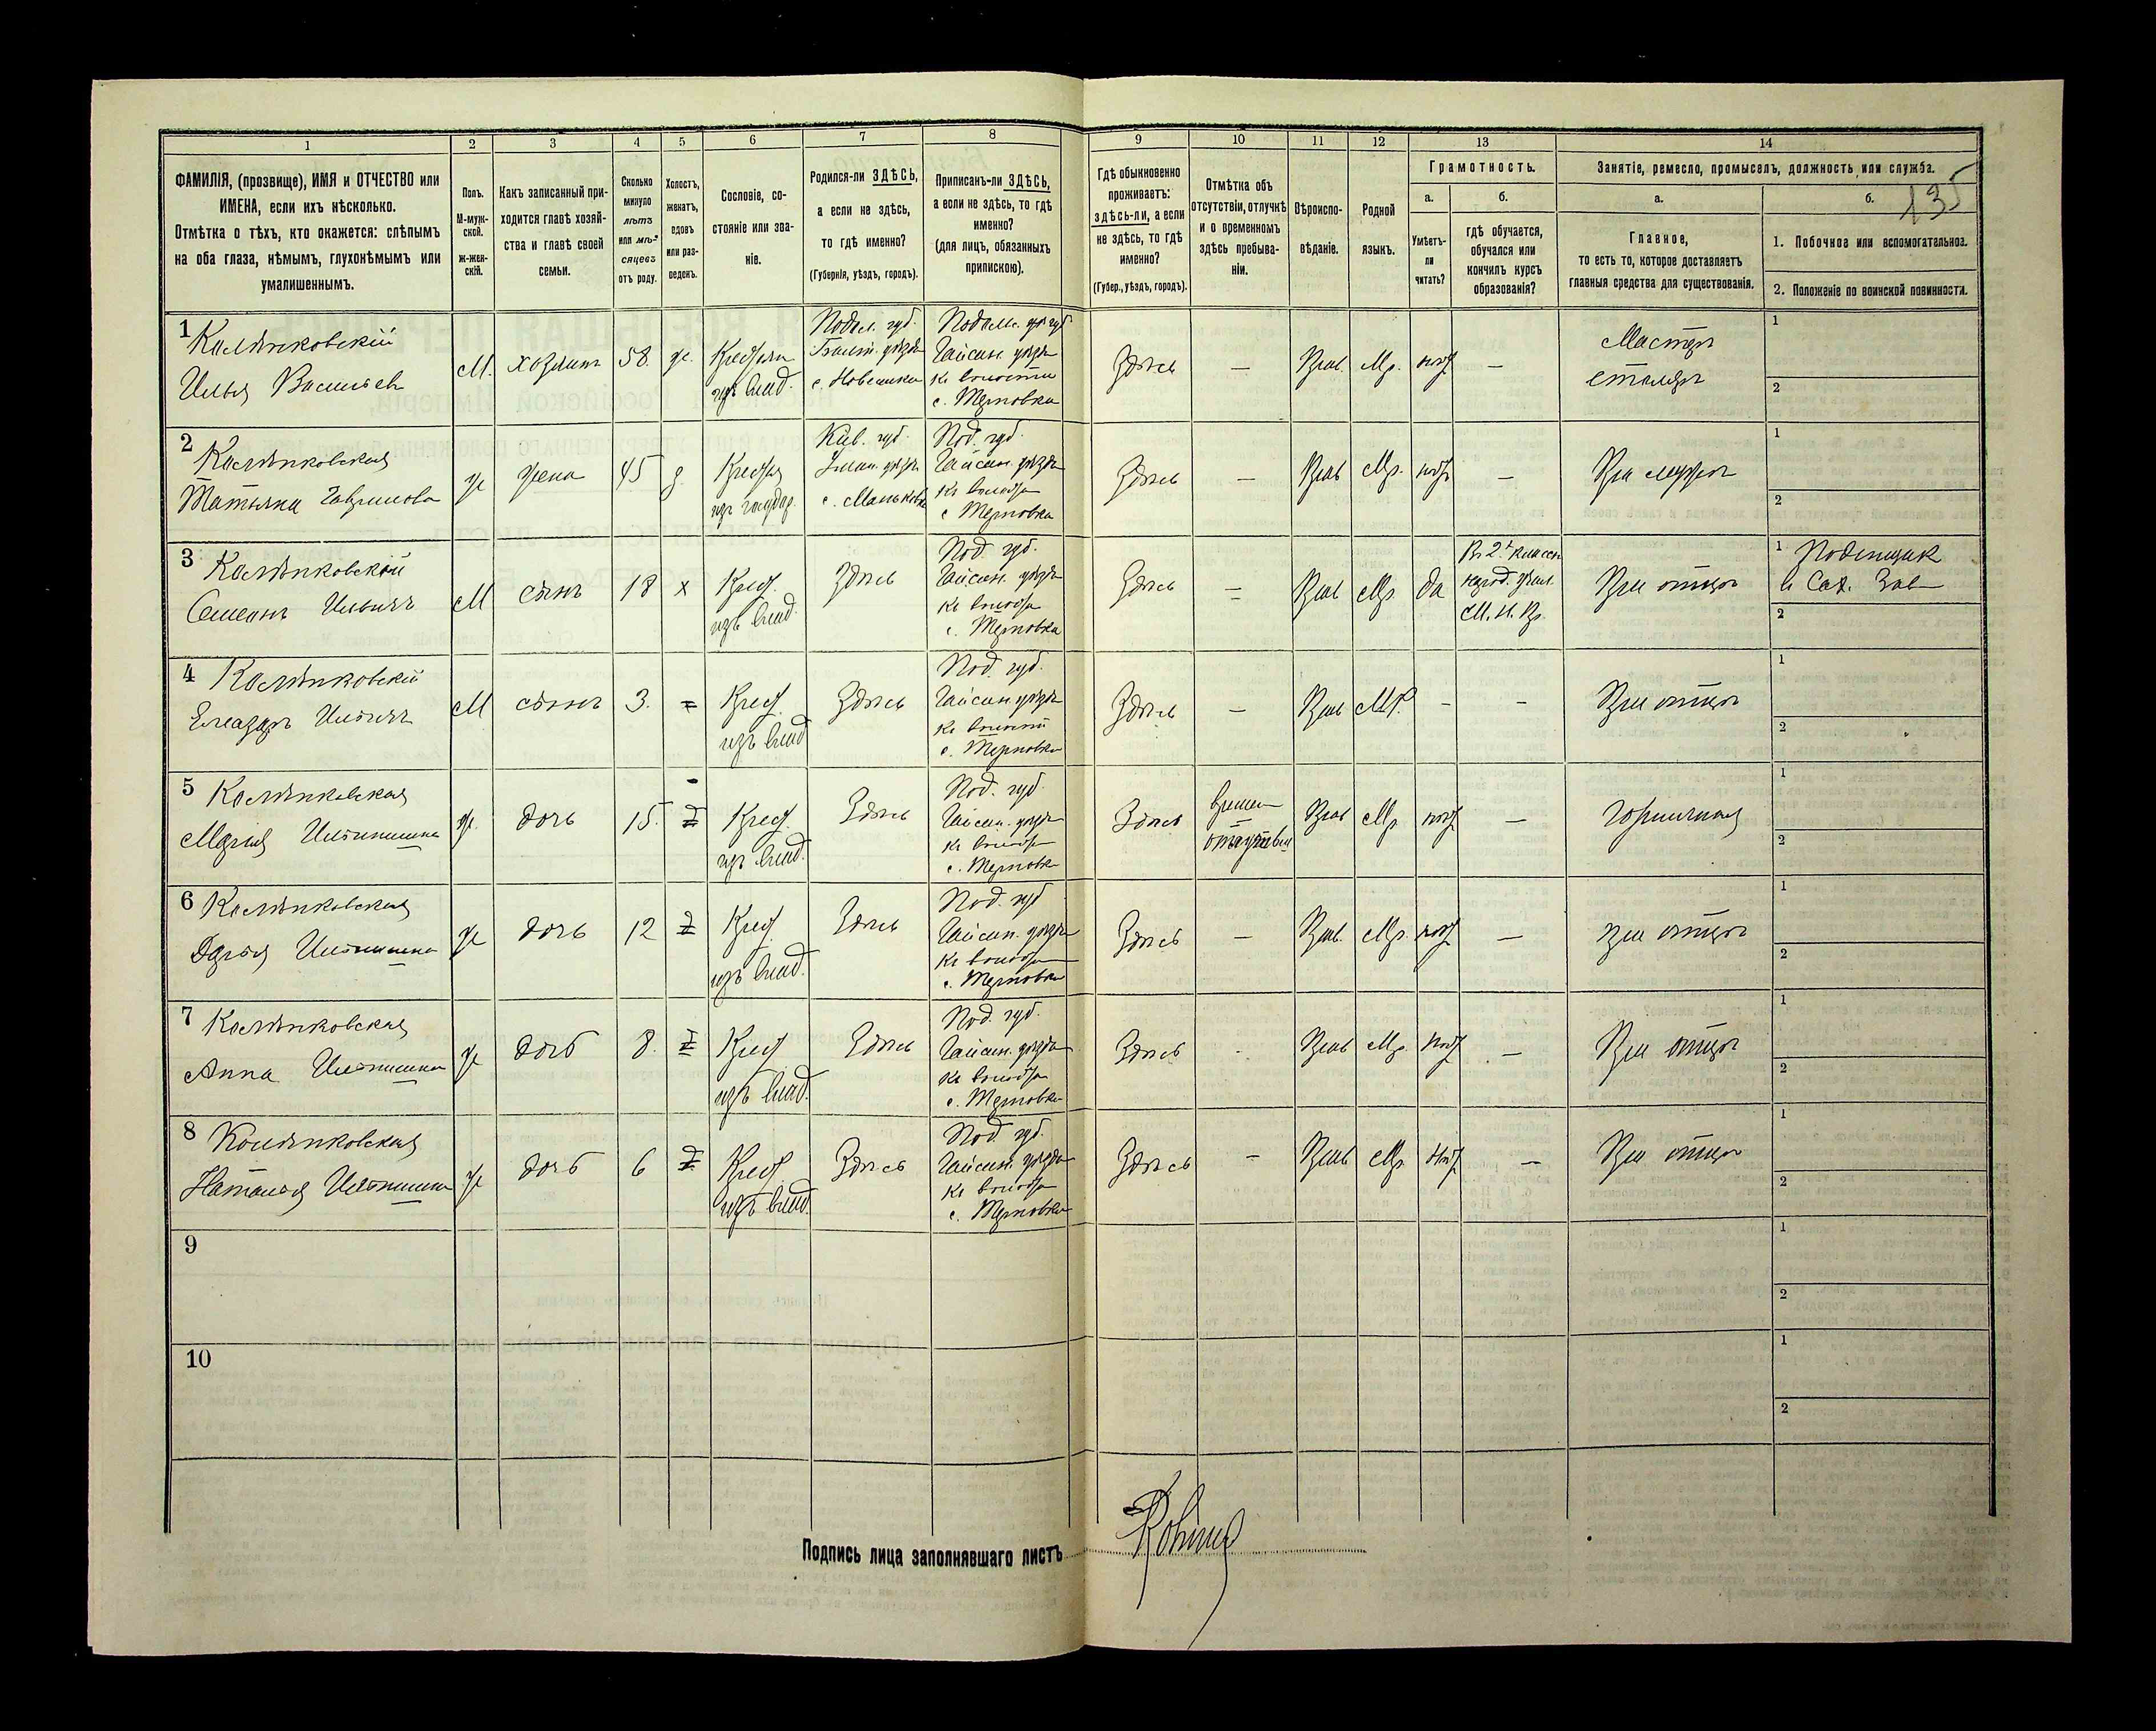 135
1
2
3
4
5
6
7
8
9
10
11
12
13
14
ФАМИЛІЯ, (прозвище), ИМЯ и ОТЧЕСТВО или
ИМЕНА, если ихъ нѣсколько.
Отмѣтка о тѣхъ, кто окажется: слѣпымъ
на оба глаза, нѣмымъ, глухонѣмымъ или
умалишеннымъ.
Полъ.
М-муж-
ской.
Ж-жен-
скій.
Какъ записанный при-
ходится главѣ хозяй-
ства и главѣ своей
семьи.
Сколько
минуло
лѣтъ
или мѣ-
сяцевъ
отъ роду.
Холостъ,
женатъ,
вдовъ
или раз-
веденъ.
Сословіе, со-
стояніе или зва-
ніе.
Родился-ли ЗДѢСЬ,
а если не здѣсь,
то гдѣ именно?
(Губернія, уѣздъ, городъ).
Приписанъ-ли ЗДѢСЬ,
а если не здѣсь, то гдѣ
именно?
(для лицъ, обязанныхъ
припискою).
Гдѣ обыкновенно
проживаетъ:
здѣсь-ли, а если
не здѣсь, то гдѣ
именно?
(Губер., уѣздъ, городъ).
Отмѣтка объ
отсутствіи, отлучкѣ
и о временномъ
здѣсь пребыва-
ніи.
Вѣроиспо-
вѣданіе.
Родной
языкъ.
Грамотность.
а.
Умѣетъ-
ли
читать?
б.
гдѣ обучается,
обучался или
кончилъ курсъ
образованія?
Занятіе, ремесло, промыселъ, должность или служба.
а.
Главное,
то есть то, которое доставляетъ
главныя средства для существованія.
б.
1. Побочное или вспомогательное.
2. Положеніе по воинской повинности.
1
Колѣнковскій
Илья Васильевъ
М.
хозяинъ
58.
ж.
изъ влад.
Подол. губ.
Балт. уѣзда
Гайсин. уѣзда
къ волости
с. Терновка
Здѣсь
—
Прав.
Мр.
нѣт
—
Мастеръ
столяръ
1
2
2
Колѣнковская
Татьяна Гаврилова
ж
жена
45
Кіев. губ.
Уман. уѣзда
с. Маньковка
Под. губ.
Гайсин. уѣзда
с. Терновка
Здѣсь
—
Прав
Мр.
нѣт
—
При мужѣ
1
2
3
Колѣнковскій
Семенъ Ильичъ
М
сынъ
18
х
Крест.
изъ влад.
Здѣсь
Под. губ.
Гайсин. уѣзда
с. Терновка
Здѣсь
Прав
Мр.
да
В. 2х классн.
народ. учил.
М. Н. Пр.
При отцѣ
1 Поденщик
в Сах. Зав—
2
4
Колѣнковскій
Елеазаръ Ильичъ
М
сынъ
3.
Крест.
изъ влад
Здѣсь
Под. губ.
Гайсин уѣзда
къ волости
с. Терновка
Здѣсь
—
Прав
Мр.
-
-
При отцѣ
1
2
5
Колѣнковская
Марія Ильинишна
ж.
дочь
15.
Крест.
изъ влад.
Здѣсь
Под. губ.
Гайсин. уѣзда
с. Терновка
Здѣсь
времен
отсутствіи
Прав
Мр
нѣт
—
горничная
1
2
6
Колѣнковская
Дарья Ильинишна
ж
дочь
12
Крест
изъ влад.
Здѣсь
Под. губ
Гайсин. уѣзда
с. Терновка
Здѣсь
—
Прав.
Мр.
нѣт
—
при отцѣ
1
2
7
Колѣнковская
Анна Ильинишна
ж
дочь
8.
Крест
изъ влад.
Здѣсь
Под. губ.
Гайсин. уѣзда
с. Терновка
Здѣсь
-
Прав
Мр.
нѣт
—
При отцѣ
1
2
8
Колѣнковская
Наталья Ильинишна
ж
дочь
6
Крест.
изъ влад.
Здѣсь
Под. губ.
Гайсин. уѣзда
с. Терновка
Здѣсь
-
Прав
Мр
нѣт
—
При отцѣ
1
2
9
1
2
10
1
2
Подпись лица заполнявшаго листъ